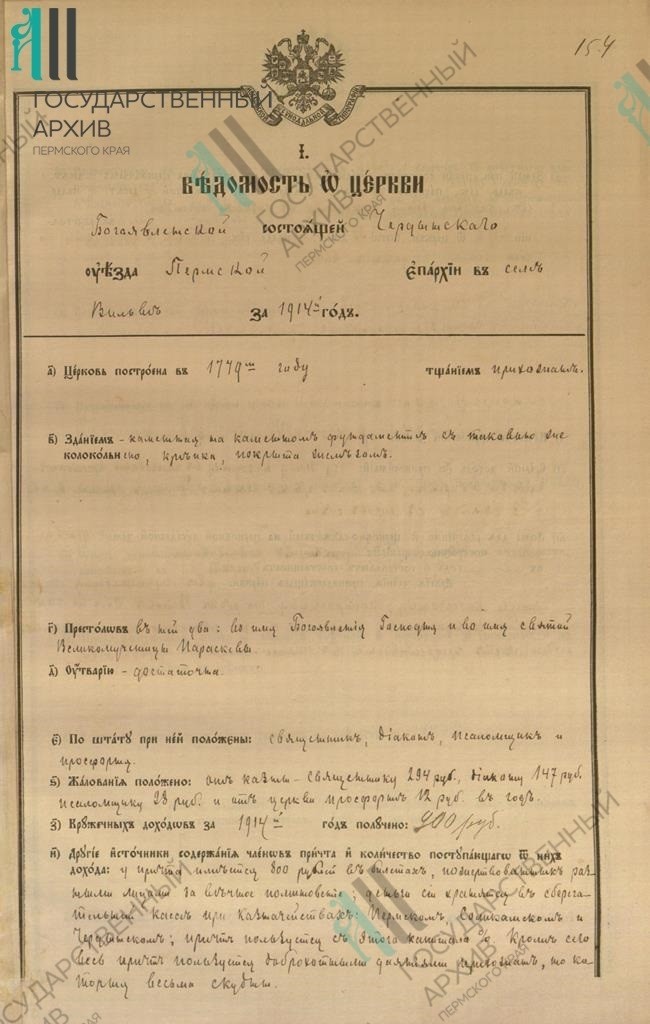 154
ГОСУДАРСТВЕННЫЙ
АРХИВ
ПЕРМСКОГО КРАЯ
І.
ВѢДОМОСТЬ Ѡ ЦЕРКВИ
Богоявленской состоѧщей Чердынскаго
оуѣзда Пермской епархіи въ селѣ
Вильвѣ за 1914й годъ.
а) Церковь построена въ 1779мъ году тщаніемъ прихожанъ.
в) Зданіемъ - каменная на каменномъ фундаментѣ, съ таковою же
колокольнею, крѣпка, покрыта желѣзомъ.
г) Престолѡвъ въ ней два: во имя Богоявленія Господня и во имя святой
Великомученицы Параскевы.
д) Оутварію - достаточна.
е) По штату при ней положены: священникъ, діаконъ, псаломщикъ и
просфорня.
ѕ) Жалованія положено: отъ казны - священнику 294 руб., діакону 147 руб.
псаломщику 98 руб. и отъ церкви просфорнѣ 12 руб. въ годъ.
з) Кружечныхъ доходѡвъ за 1914й годъ получено: 200 руб.
и) Другіе источники содержанія членѡвъ причта и количество поступающагѡ ѿ нихъ
дохода: у причта имѣется 800 рублей въ билетахъ, пожертвованныхъ раз-
ными лицами за вѣчное поминовеніе; деньги сіи хранятся въ сберега-
тельной кассѣ при казначействахъ: Пермскомъ, Соликамскомъ и
Чердынскомъ; причтъ пользуется съ этого капитала %. Кромѣ сего
весь причтъ пользуется доброхотными даяніями прихожанъ, но ко-
торыя весьма скудны.